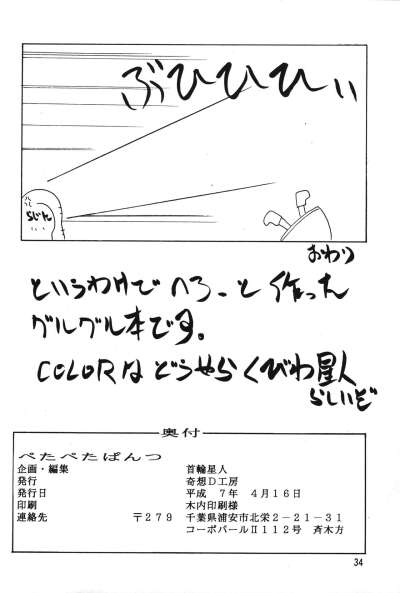 ぶひひひぃ
らじん
おわり
というわけでへろーと作った
グルグル本です。
COLORはどうやらくびわ星人
らしいぞ
奥付
ぺたぺたぱんつ
企画・編集 首輪星人
発行 奇想D工房
発行日 平成 7年 4月16日
印刷 木内印刷様
連絡先 〒279 千葉県浦安市北栄2-21-31
コーポパールⅡ112号 斉木方
34